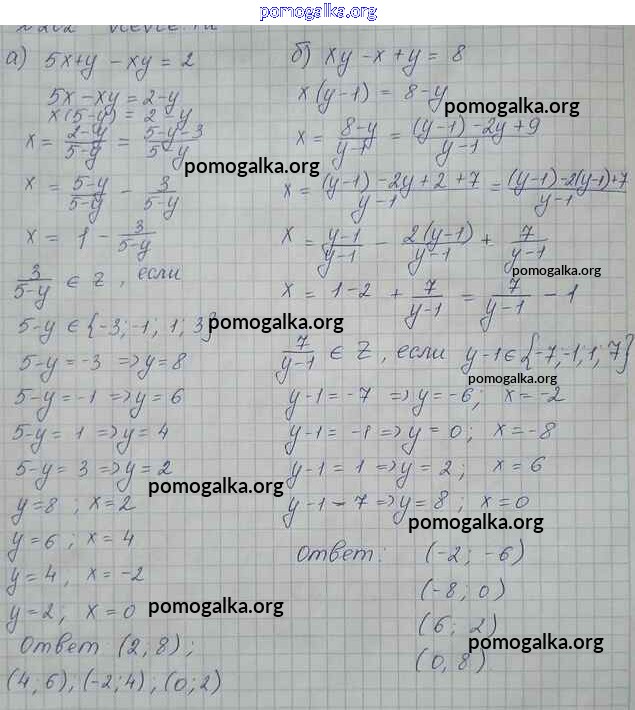 pomogalka.org
а) 5x+y-xy=2
5x-xy=2-y
x(5-y)=2-y
x = (2-y)/(5-y) = (5-y-3)/(5-y)
pomogalka.org
x = (5-y)/(5-y) - 3/(5-y)
x = 1 - 3/(5-y)
3/(5-y) ∈ Z, если
5-y ∈ {-3; -1; 1; 3}
pomogalka.org
5-y=-3 => y=8
5-y=-1 => y=6
5-y=1 => y=4
5-y=3 => y=2
pomogalka.org
y=8; x=2
y=6; x=4
y=4, x=-2
y=2; x=0
pomogalka.org
Ответ (2; 8);
(4; 6); (-2; 4); (0; 2)
б) xy-x+y=8
x(y-1)=8-y
pomogalka.org
x = (8-y)/(y-1) = ((y-1)-2y+9)/(y-1)
x = ((y-1)-2y+2+7)/(y-1) = ((y-1)-2(y-1)+7)/(y-1)
x = (y-1)/(y-1) - 2(y-1)/(y-1) + 7/(y-1)
pomogalka.org
x = 1-2 + 7/(y-1) = 7/(y-1) - 1
7/(y-1) ∈ Z, если y-1 ∈ {-7; -1; 1; 7}
pomogalka.org
y-1=-7 => y=-6; x=-2
y-1=-1 => y=0; x=-8
y-1=1 => y=2; x=6
y-1-7 => y=8; x=0
pomogalka.org
Ответ: (-2; -6)
(-8; 0)
(6; 2)
pomogalka.org
(0, 8)